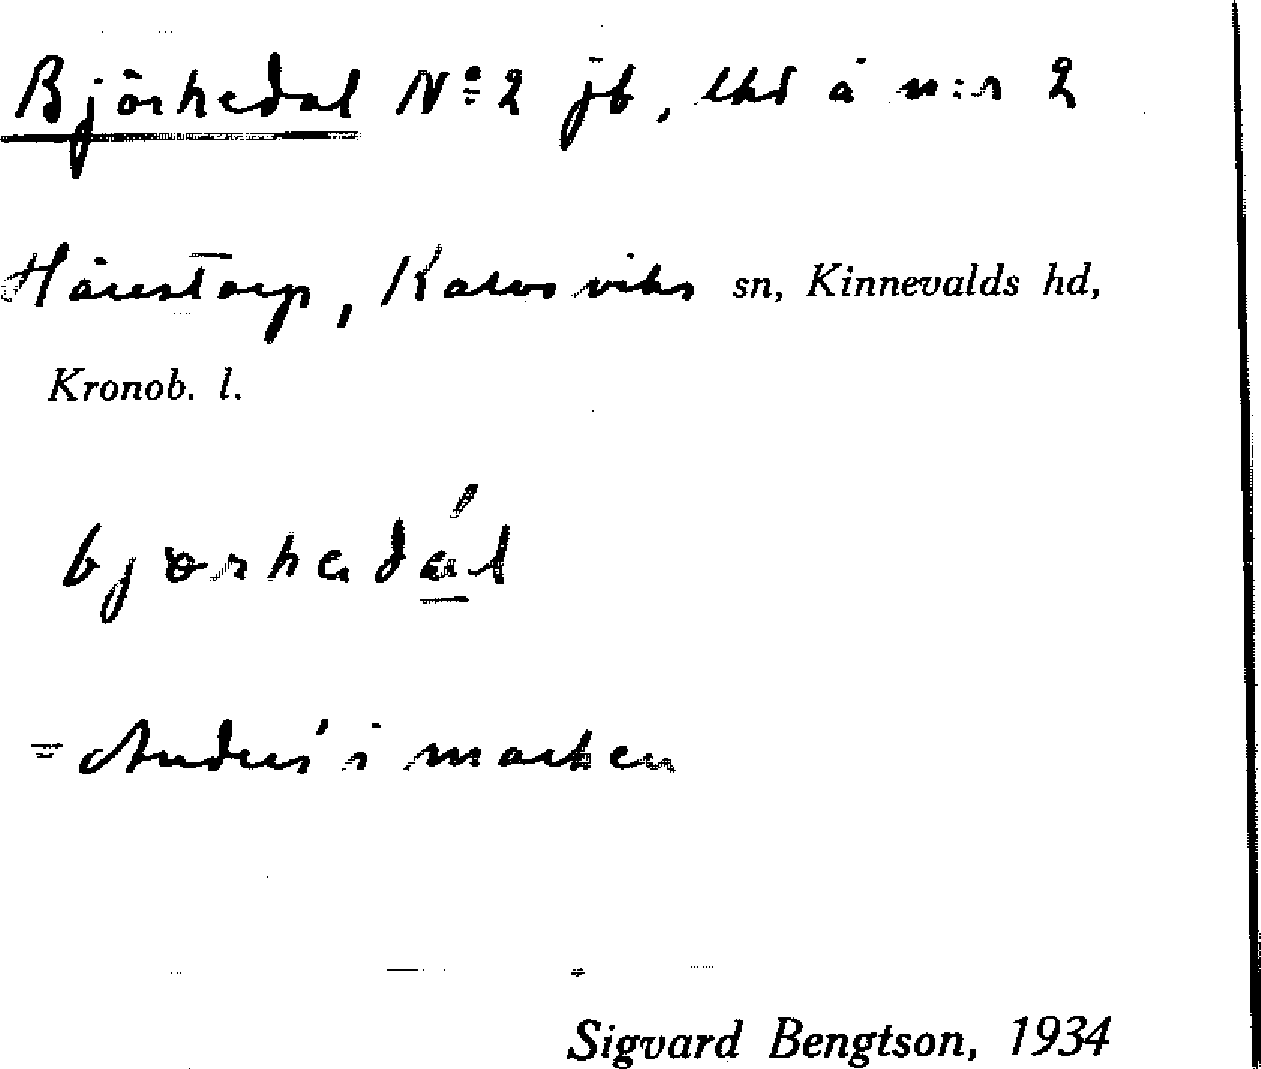 Björkedal No 2 jb, lht å n:r 2
Hårestorp, Kalvsviks sn, Kinnevalds hd,
Kronob. l.
bjørkedál
= Anders' i marken
Sigvard Bengtson, 1934